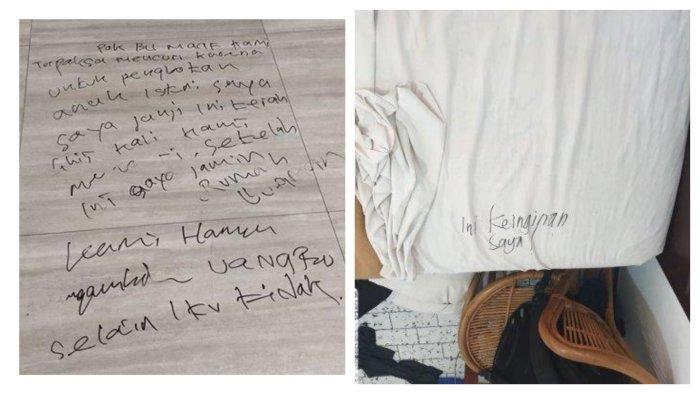 Pak Bu Maaf Kami
Terpaksa mencuri karena
untuk pengobatan
anak Istri saya
saya janji ini terah
khir kali Kami
me setelah
Ini saya jamin
Rumah
Kami Hanya
UANG
selain Itu tidak.
Ini Keinginan
saya